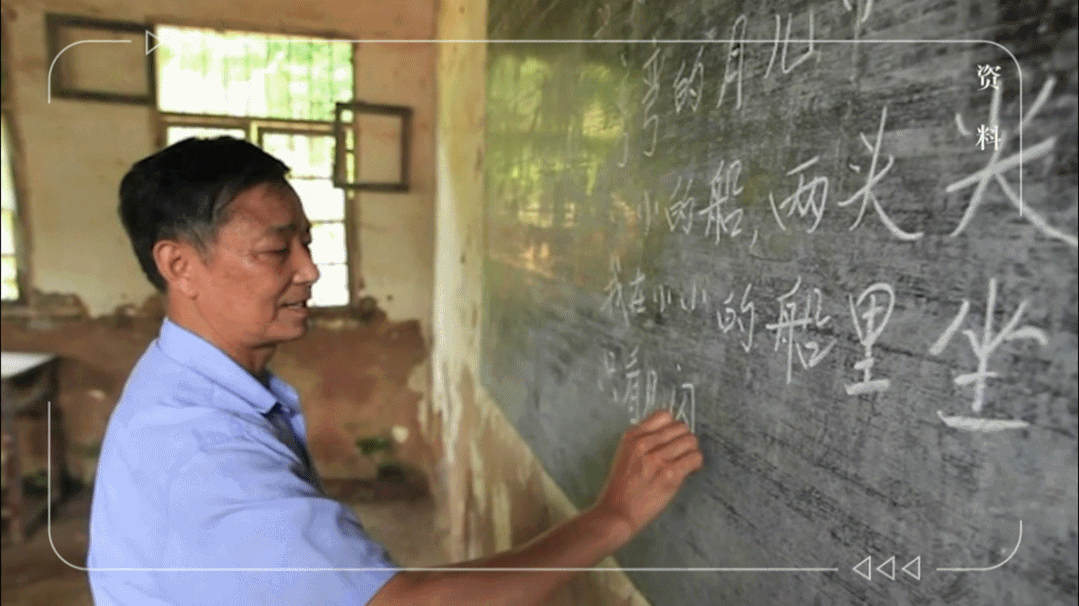 资料
弯的月儿
小的船,两头尖
我在小小的船里坐
只看见闪